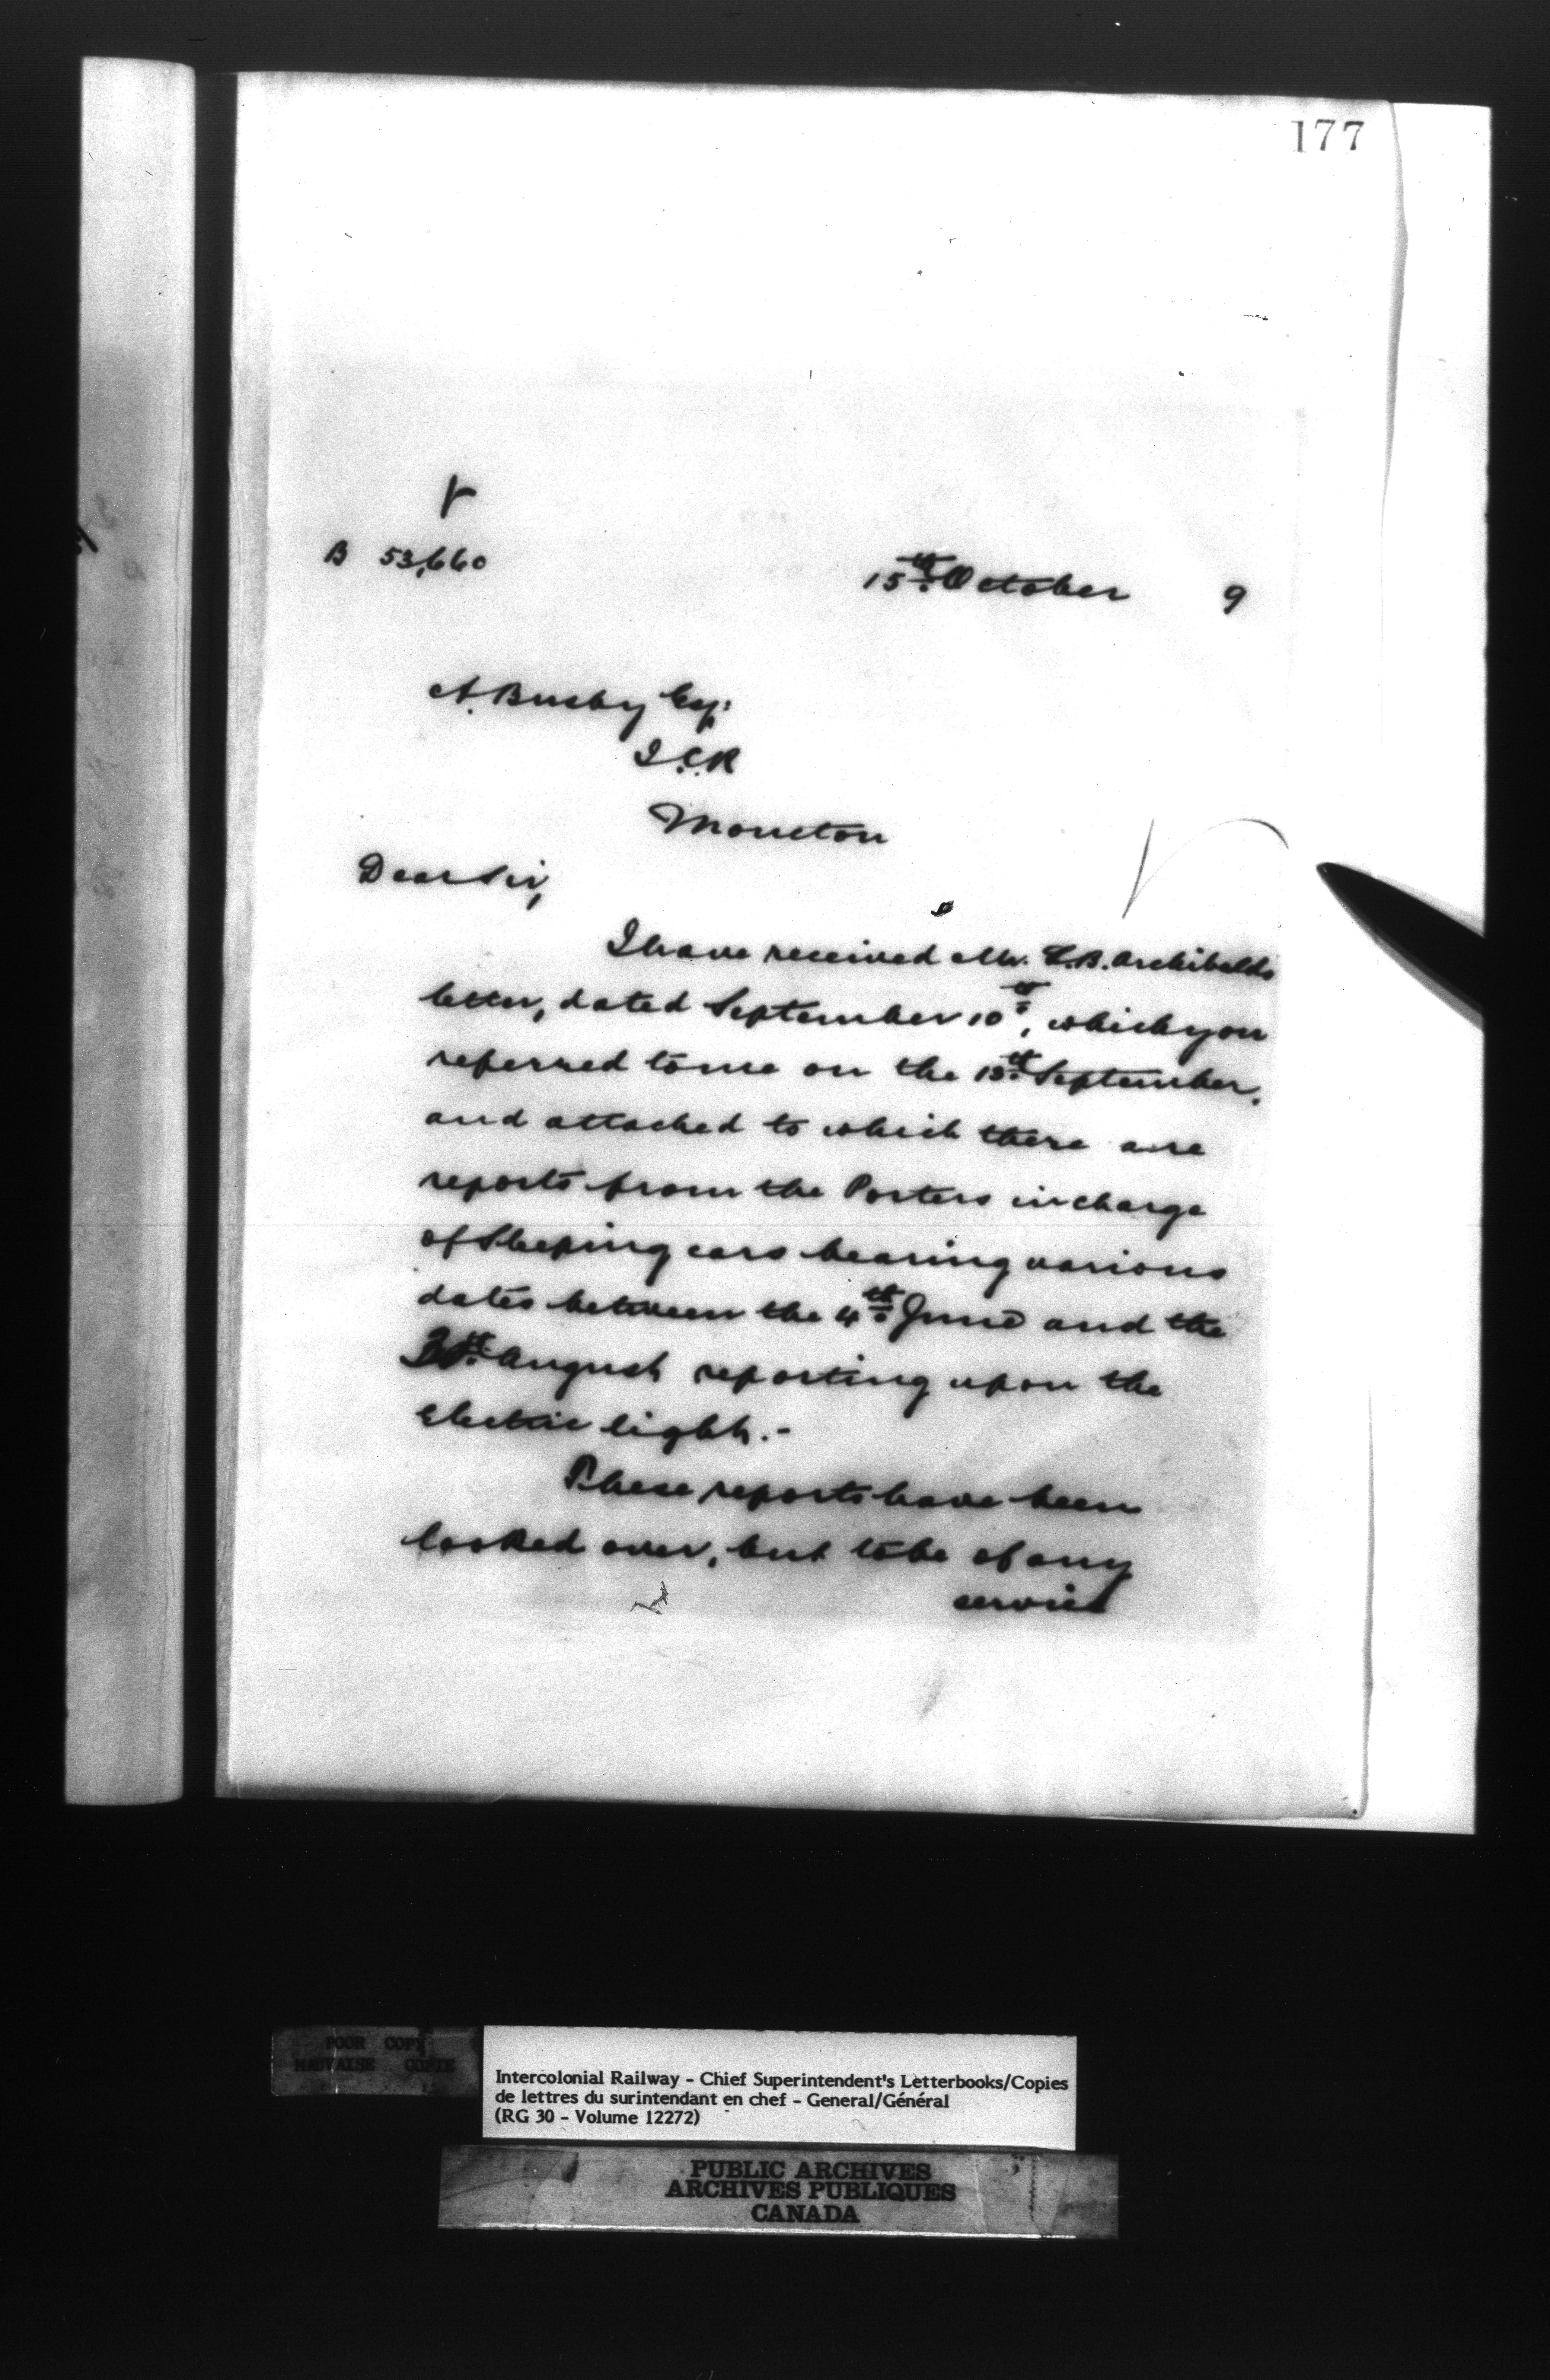 177
B 53,660
15th October 9
A. Busby Esq:
I.C.R
Moncton
Dear Sir,
I have received Mr. C.B. Archibalds
letter, dated September 10th, which you
referred to me on the 13th September.
and attached to which there are
reports from the Porters in charge
of Sleeping cars bearing various
dates between the 4th June and the
August reporting upon the
Electric light.-
These reports have been
looked over, but to be of any
service
POOR COPY
MAUVAISE COPIE
Intercolonial Railway - Chief Superintendent's Letterbooks/Copies
de lettres du surintendant en chef - General/Général
(RG 30 - Volume 12272)
PUBLIC ARCHIVES
ARCHIVES PUBLIQUES
CANADA